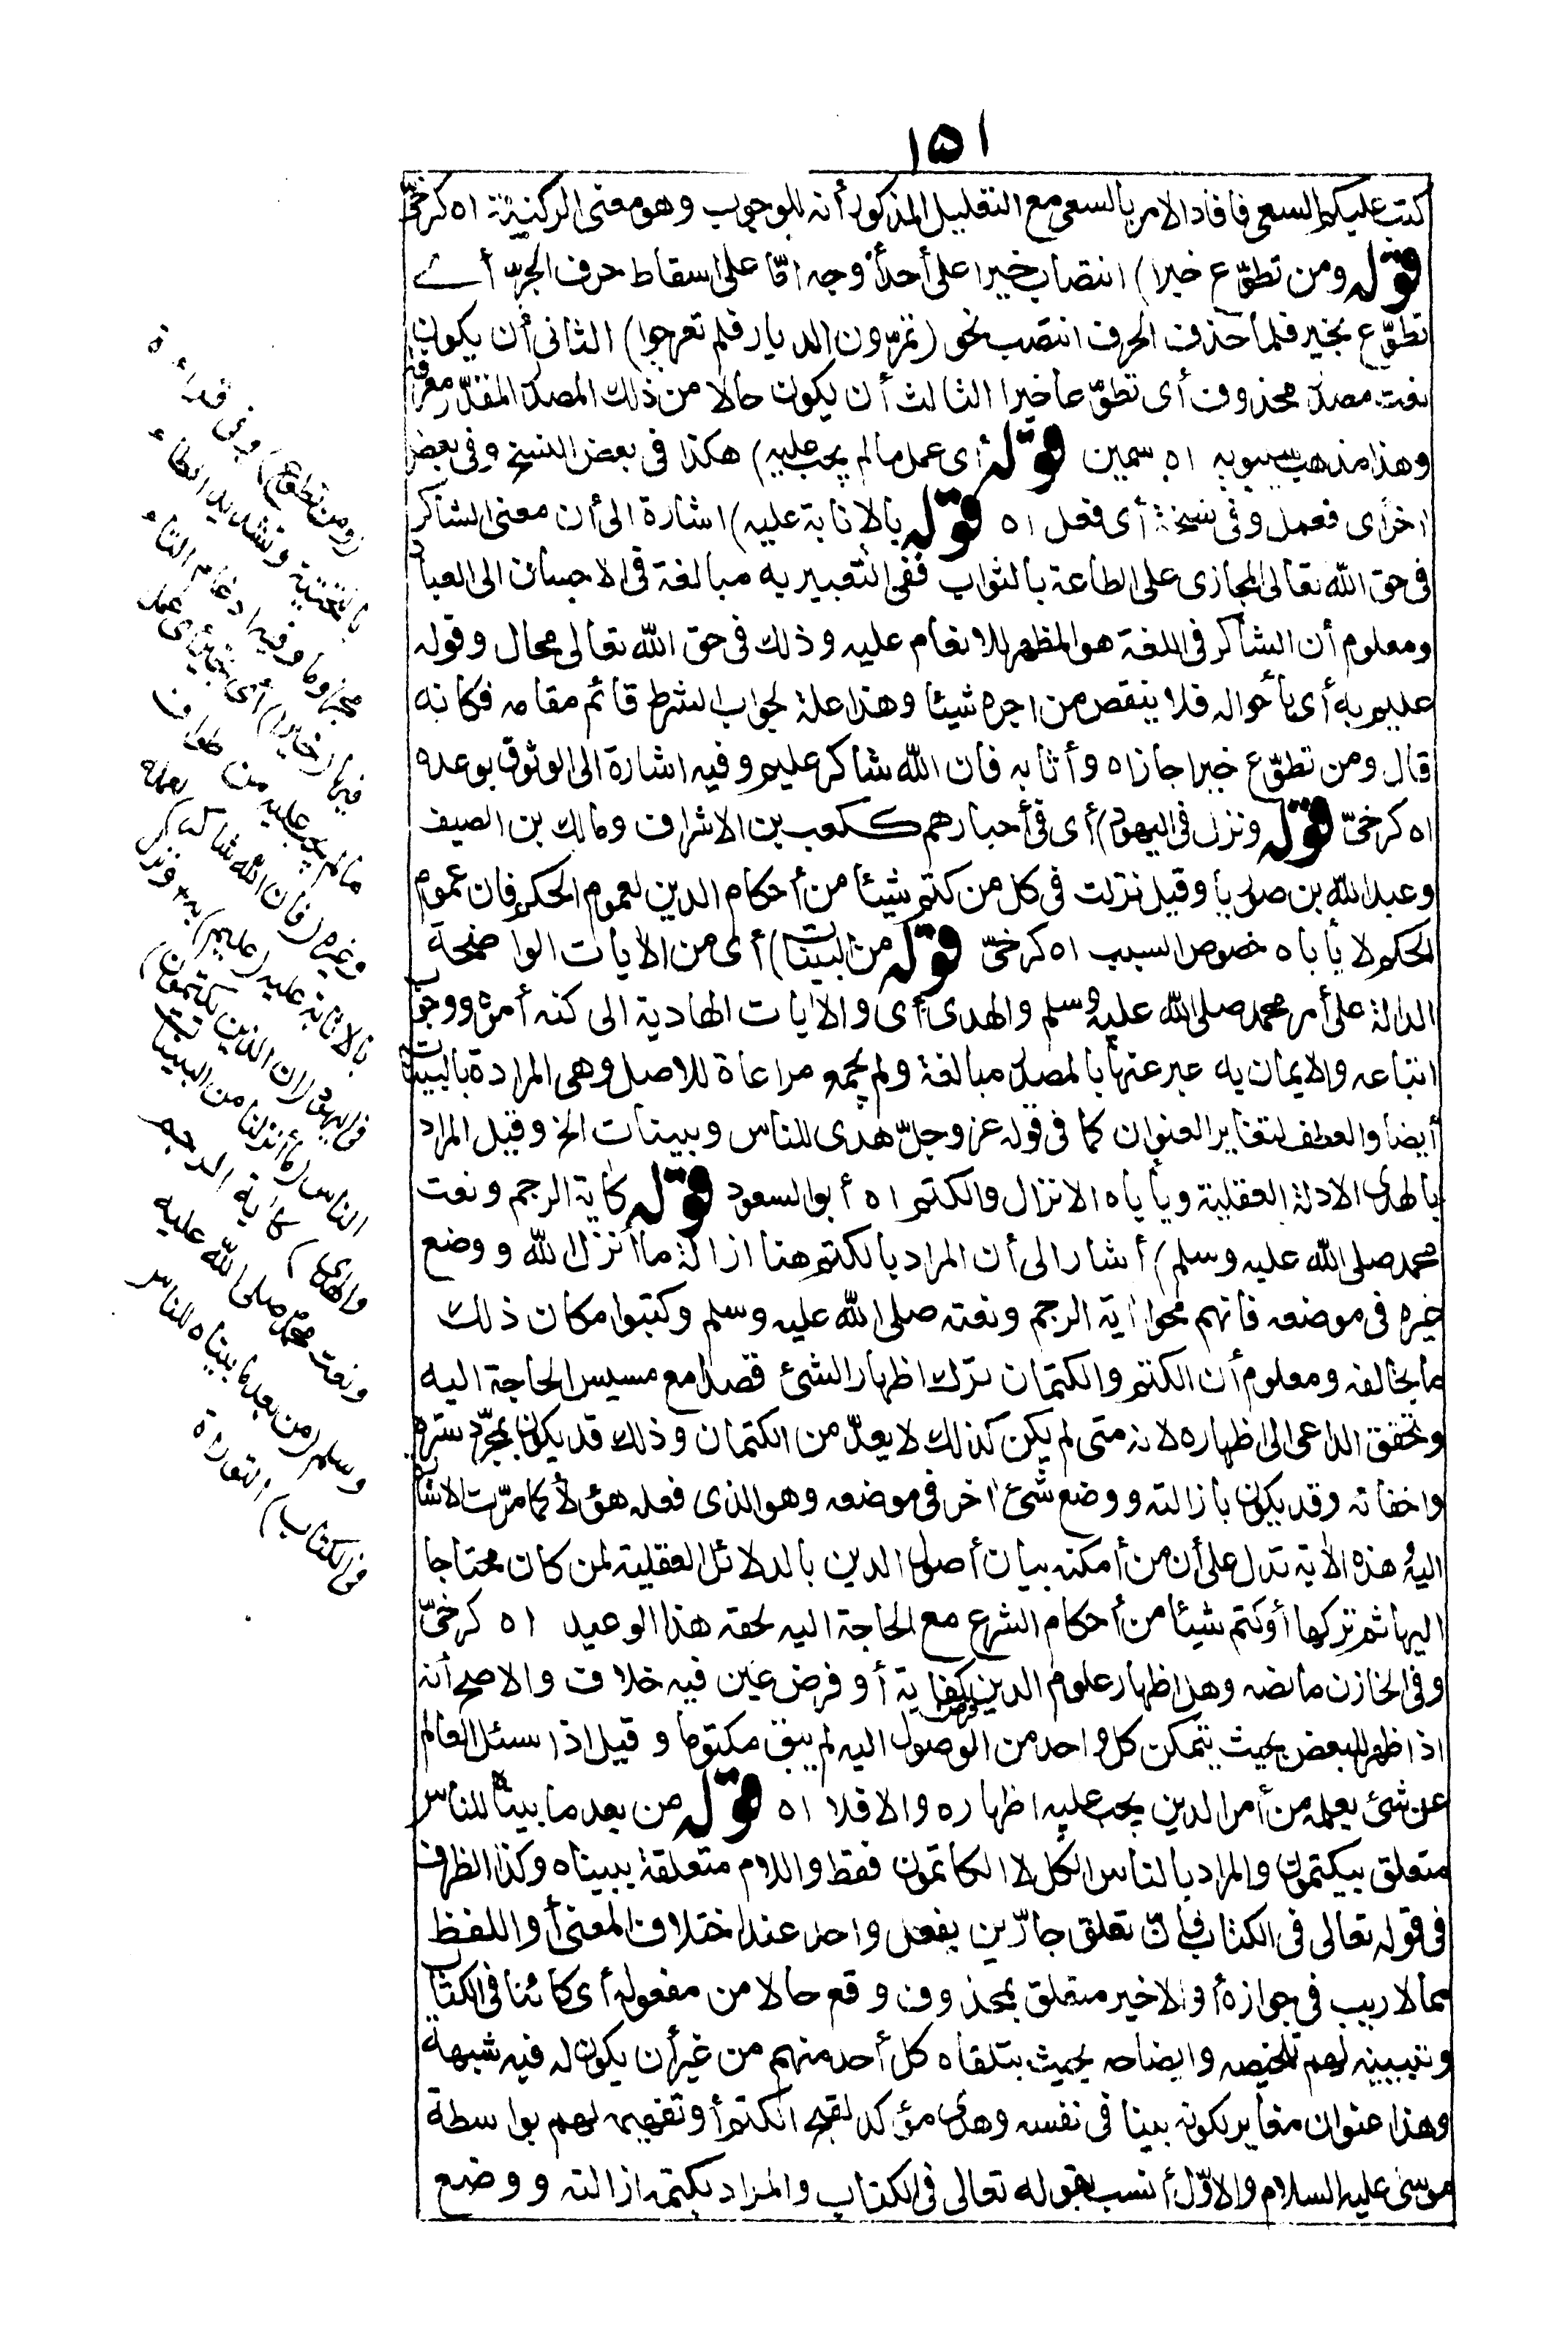 ١٥١
كتب عليكم السعى فافاد الامر بالسعى مع التعليل المذكور أنه للوجوب وهو معنى الركنية اه كرخىّ
قوله ومن تطوّع خيرا) انتصاب خيرا على أحد أوجه امّا على اسقاط حرف الجرّ أے
تطوّع بخير فلما حذف الحرف انتصب نحو (تمرّون الديار فلم تعوجوا) الثانى أن يكون
نعت مصدر محذوف أى تطوّعا خيرا الثالث أن يكون حالا من ذلك المصدر المقدّر معرفة
وهذا مذهب سيبويه اه سمين قوله أى عمل مالم يجب عليه) هكذا فى بعض النسخ وفى بعض
اخر أى فعمل وفى نسخة أى فعل اه قوله بالاثابة عليه) اشارة الى أن معنى الشاكر
فى حق الله تعالى المجازى على الطاعة بالثواب ففى التعبير به مبالغة فى الاحسان الى العباد
ومعلوم أن الشاكر فى اللغة هو المظهر للانعام عليه وذلك فى حق الله تعالى محال وقوله
عليم به أى بأحواله فلا ينقص من اجره شيئا وهذا علة لجواب الشرط قائم مقامه فكانه
قال ومن تطوّع خيرا جازاه وأثابه فان الله شاكر عليم وفيه اشارة الى الوثوق بوعده
اه كرخىّ قوله ونزل فى اليهود) أى فى أحبارهم ككعب بن الاشراف ومالك بن الصيف
وعبد الله بن صوريا وقيل نزلت فى كل من كتم شيئا من أحكام الدين لعموم الحكم فان عموم
الحكم لا يأباه خصوص السبب اه كرخىّ قوله من البينات) أى من الاٰيات الواضحة
الدالة على أمر محمد صلى الله عليه وسلم والهدى أى والاٰيات الهادية الى كنه أمره ووجوب
اتباعه والايمان به عبر عنها بالمصدر مبالغة ولم يجمع مراعاة للاصل وهى المرادة بالبينات
أيضا والعطف لتغاير العنوان كما فى قوله عز وجلّ هدى للناس وبينات الخ وقيل المراد
بالهدى الادلة العقلية ويأباه الانزال والكتم اه أبو السعود قوله كاٰية الرجم ونعت
محمد صلى الله عليه وسلم) أشار الى أن المراد بالكتم هنا ازالة ما أنزل الله ووضع
غيره فى موضعه فانهم محوا اٰية الرجم ونعته صلى الله عليه وسلم وكتبوا مكان ذلك
ما يخالفه ومعلوم أن الكتم والكتمان ترك اظهار الشئ قصدا مع مسيس الحاجة اليه
وتحقق الداعى الى اظهاره لانه متى لم يكن كذلك لا يعدّ من الكتمان وذلك قد يكون بمجرّد ستره
واخفائه وقد يكون بازالته ووضع شئ اٰخر فى موضعه وهو الذى فعله هؤلاء كما مرّت الاشارة
اليه هذه الاٰية تدل على أن من أمكنه بيان أصول الدين بالدلائل العقلية لمن كان محتاجا
اليها ثم تركها أو كتم شيئا من أحكام الشرع مع الحاجة اليه لحقه هذا الوعيد اه كرخىّ
وفى الخازن ما نصه وهل اظهار علوم الدين فرض كفاية أو فرض عين فيه خلاف والاصح أنه
اذا ظهر للبعض بحيث يتمكن كل واحد من الوصول اليه لم يبق مكتوما وقيل اذا سئل العالم
عن شئ يعلمه من أمر الدين يجب عليه اظهاره والا فلا اه قوله من بعد ما بيناه للناس
متعلق بيكتمون والمراد بالناس الكل لا الكاتمون فقط واللام متعلقة ببيناه وكذا الظرف
فى قوله تعالى فى الكتاب فانّ تعلق جارّين بفعل واحد عند اختلاف المعنى أو اللفظ
مما لا ريب فى جوازه أو الاخير متعلق بمحذوف وقع حالا من مفعوله أى كائنا فى الكتاب
وتبيينه لهم تلخيصه وايضاحه بحيث يتلقاه كل أحد منهم من غير أن يكون له فيه شبهة
وهذا عنوان مغاير لكونه بينا فى نفسه وهدى مؤكد لقبح الكتم أو تفهيمه لهم بواسطة
موسى عليه السلام والاوّل أنسب بقوله تعالى فى الكتاب والمراد بكتمه ازالته ووضع
(ومن تطوع) وفى قراءة
بالتحتية وتشديد الطاء
مجزوما وفيه ادغام التاء
فيها (خيرا) أى بخير أى عمل
مالم يجب عليه من طواف
وغيره (فان الله شاكر) لعمله
بالاثابة عليه (عليم) به ونزل
فى اليهود (ان الذين يكتمون)
الناس (ما أنزلنا من البينات
والهدى) كاٰية الرجم
ونعت محمد صلى الله عليه
وسلم (من بعد ما بيناه للناس
فى الكتاب) التوراة